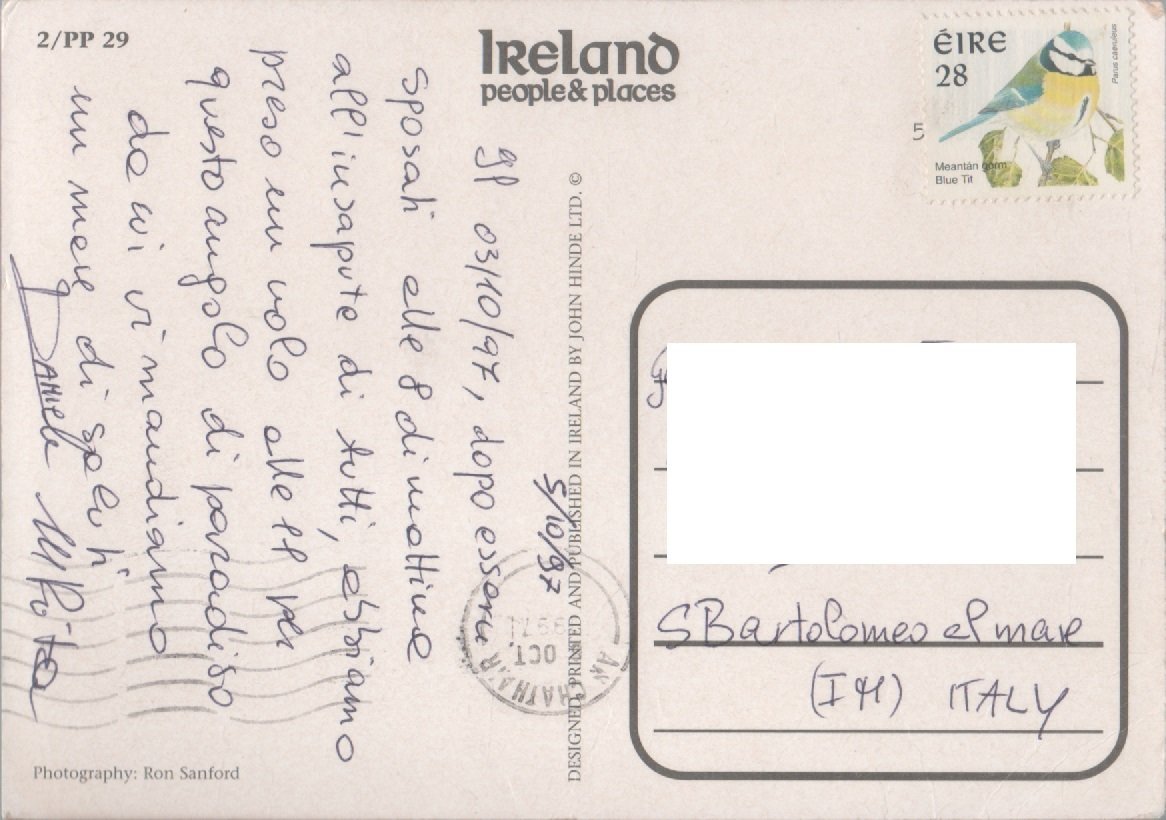 2/PP 29
Ireland
people & places
ÉIRE
28
Parus caeruleus
Meantán gorm
Blue Tit
5/10/97
gl 03/10/97, dopo essere
sposati alle 8 di mattina
all'insaputa di tutti, abbiamo
preso un volo alle 11 per
questo angolo di paradiso
da cui vi mandiamo
un mare di saluti
Daniela
DESIGNED, PRINTED AND PUBLISHED IN IRELAND BY JOHN HINDE LTD. ©
OCT
S Bartolomeo al mare
(IM) ITALY
Photography: Ron Sanford